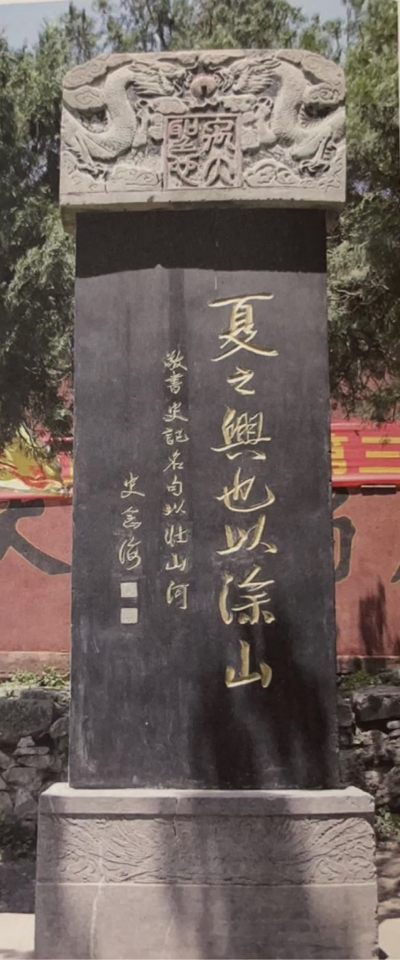 夏之興也以涂山
敬書史記名句以壯山河
史念海
第三